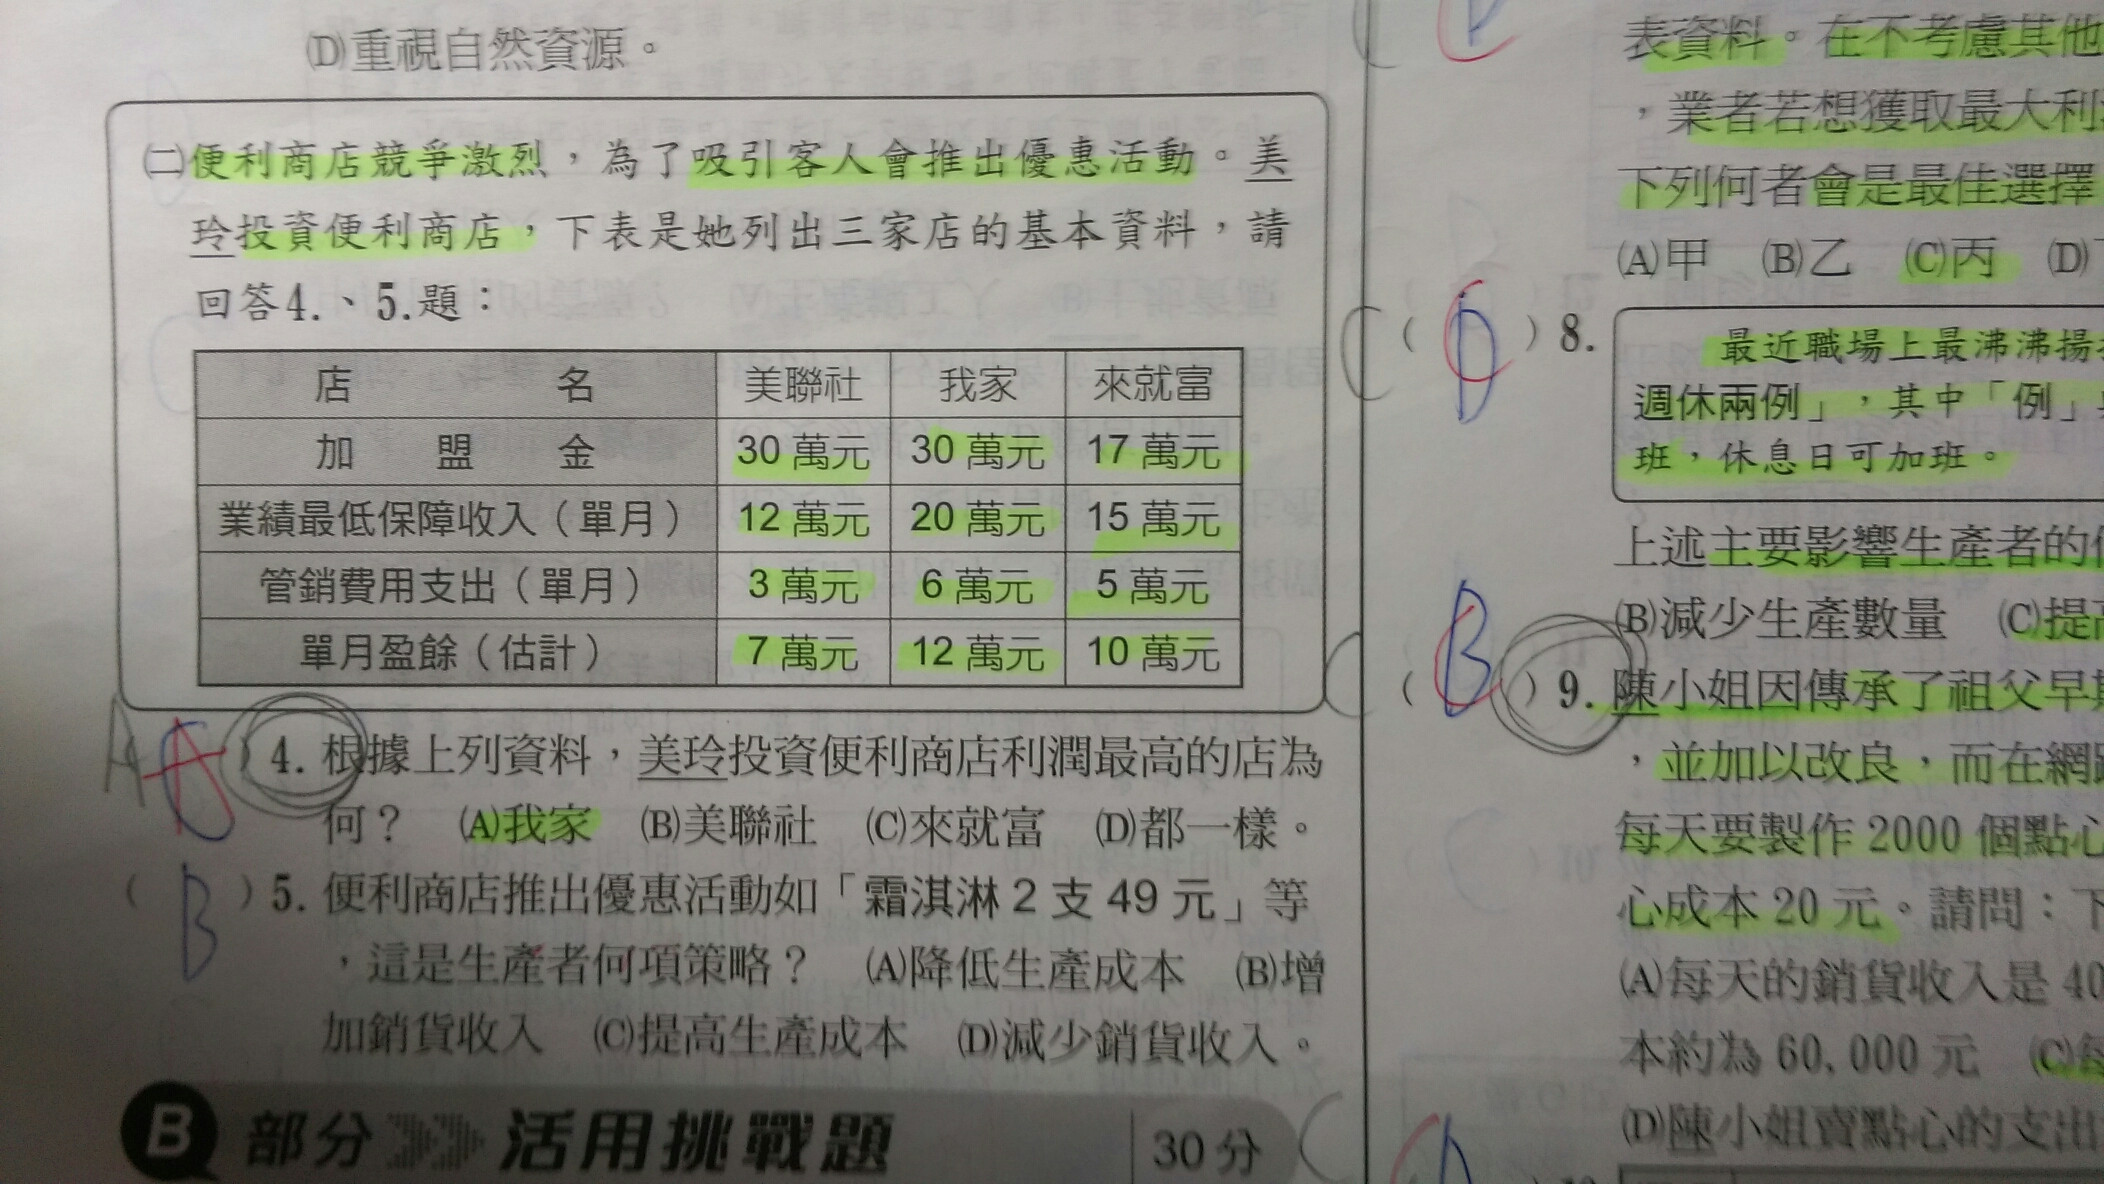 (D)重視自然資源。
㈡便利商店競爭激烈，為了吸引客人會推出優惠活動。美
玲投資便利商店，下表是她列出三家店的基本資料，請
回答4.、5.題：
店名 美聯社 我家 來就富
加盟金 30 萬元 30 萬元 17 萬元
業績最低保障收入（單月） 12 萬元 20 萬元 15 萬元
管銷費用支出（單月） 3 萬元 6 萬元 5 萬元
單月盈餘（估計） 7 萬元 12 萬元 10 萬元
A A )4. 根據上列資料，美玲投資便利商店利潤最高的店為
何？ (A)我家 (B)美聯社 (C)來就富 (D)都一樣。
( B )5. 便利商店推出優惠活動如「霜淇淋 2 支 49 元」等
，這是生產者何項策略？ (A)降低生產成本 (B)增
加銷貨收入 (C)提高生產成本 (D)減少銷貨收入。
B 部分 活用挑戰題 30 分
表資料。在不考慮其他
，業者若想獲取最大利
下列何者會是最佳選擇
(A)甲 (B)乙 (C)丙 (D)
( D )8.
最近職場上最沸沸揚
週休兩例」，其中「例」
班，休息日可加班。
上述主要影響生產者的
(B)減少生產數量 (C)提
( B )9. 陳小姐因傳承了祖父早
，並加以改良，而在網
每天要製作 2000 個點心
心成本 20 元。請問：下
(A)每天的銷貨收入是 40
本約為 60,000 元 (C)每
(D)陳小姐賣點心的支出